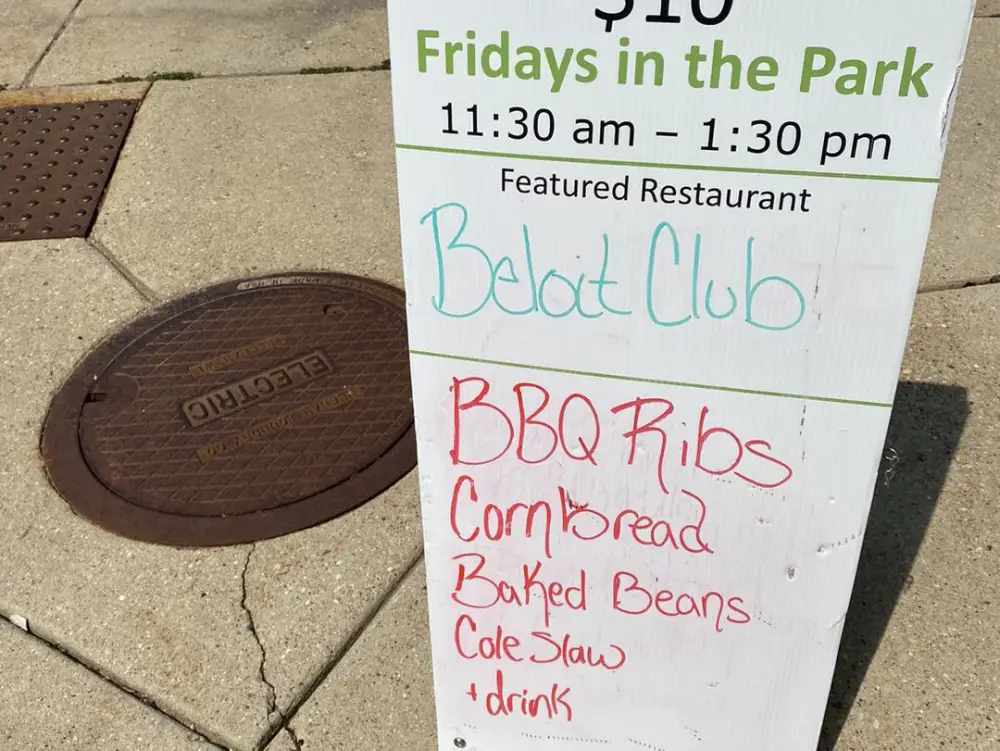 $10
Fridays in the Park
11:30 am – 1:30 pm
Featured Restaurant
Beloit Club
BBQ Ribs
Cornbread
Baked Beans
Cole Slaw
+ drink
ELECTRIC
MADE IN USA